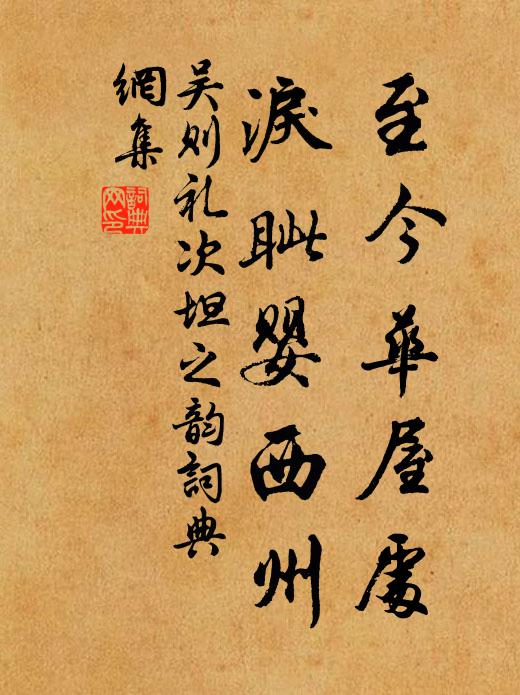 至今華屋處
淚眦嬰西州
吴则礼次坦之韵詞典
網集
詞典
网印